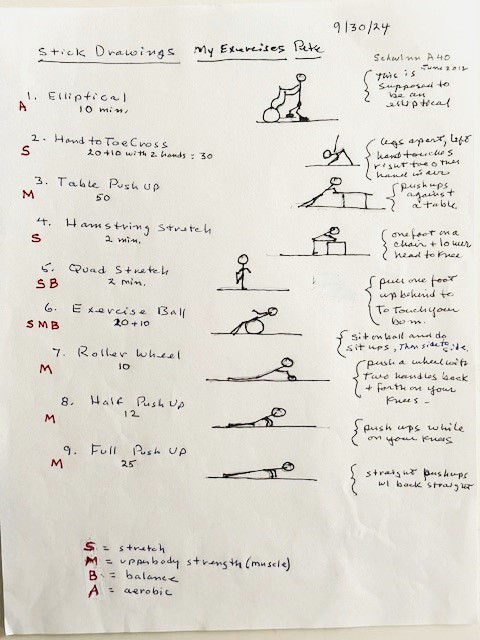 9/30/24
Stick Drawings My Exercises Pete
Schwinn A40
June 2012
{ this is
supposed to
be an
elliptical
1. Elliptical
A 10 min.
2. Hand to Toe Cross
S 20+10 with 2 hands = 30
{ legs apart, left
hand touches
right toe other
hand in air
3. Table Push Up
M 50
{ pushups
against
a table
4. Hamstring Stretch
S 2 min.
{ one foot on a
chair + lower
head to knee
5. Quad Stretch
S B 2 min.
{ pull one foot
up behind to
To touch your
bum.
6. Exercise Ball
S M B 20+10
{ sit on ball and do
sit ups, then side to side.
7. Roller Wheel
M 10
{ push a wheel with
two handles back
+ forth on your
knees -
8. Half Push Up
M 12
{ push ups while
on your knees
9. Full Push Up
M 25
{ straight pushups
w/ back straight
S = stretch
M = upperbody strength (muscle)
B = balance
A = aerobic